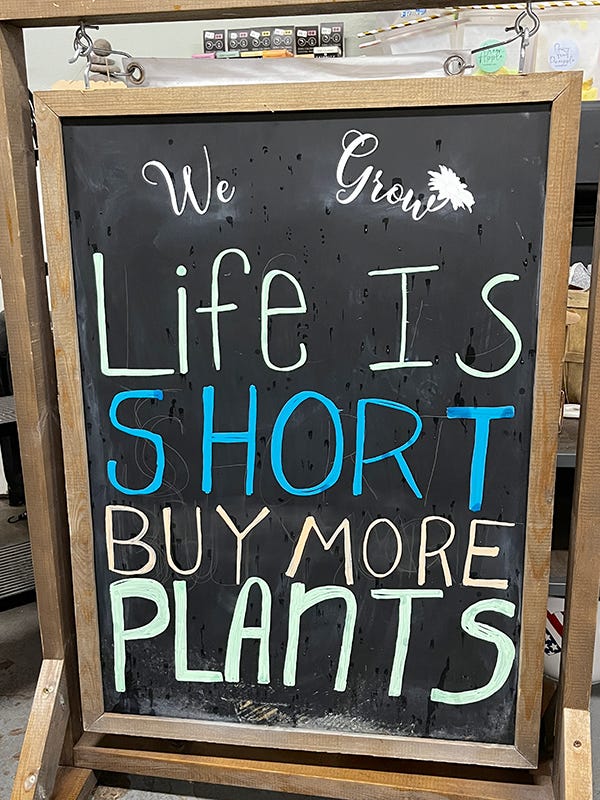 We Grow
Life Is
SHORT
BUY MORE
PLANTS